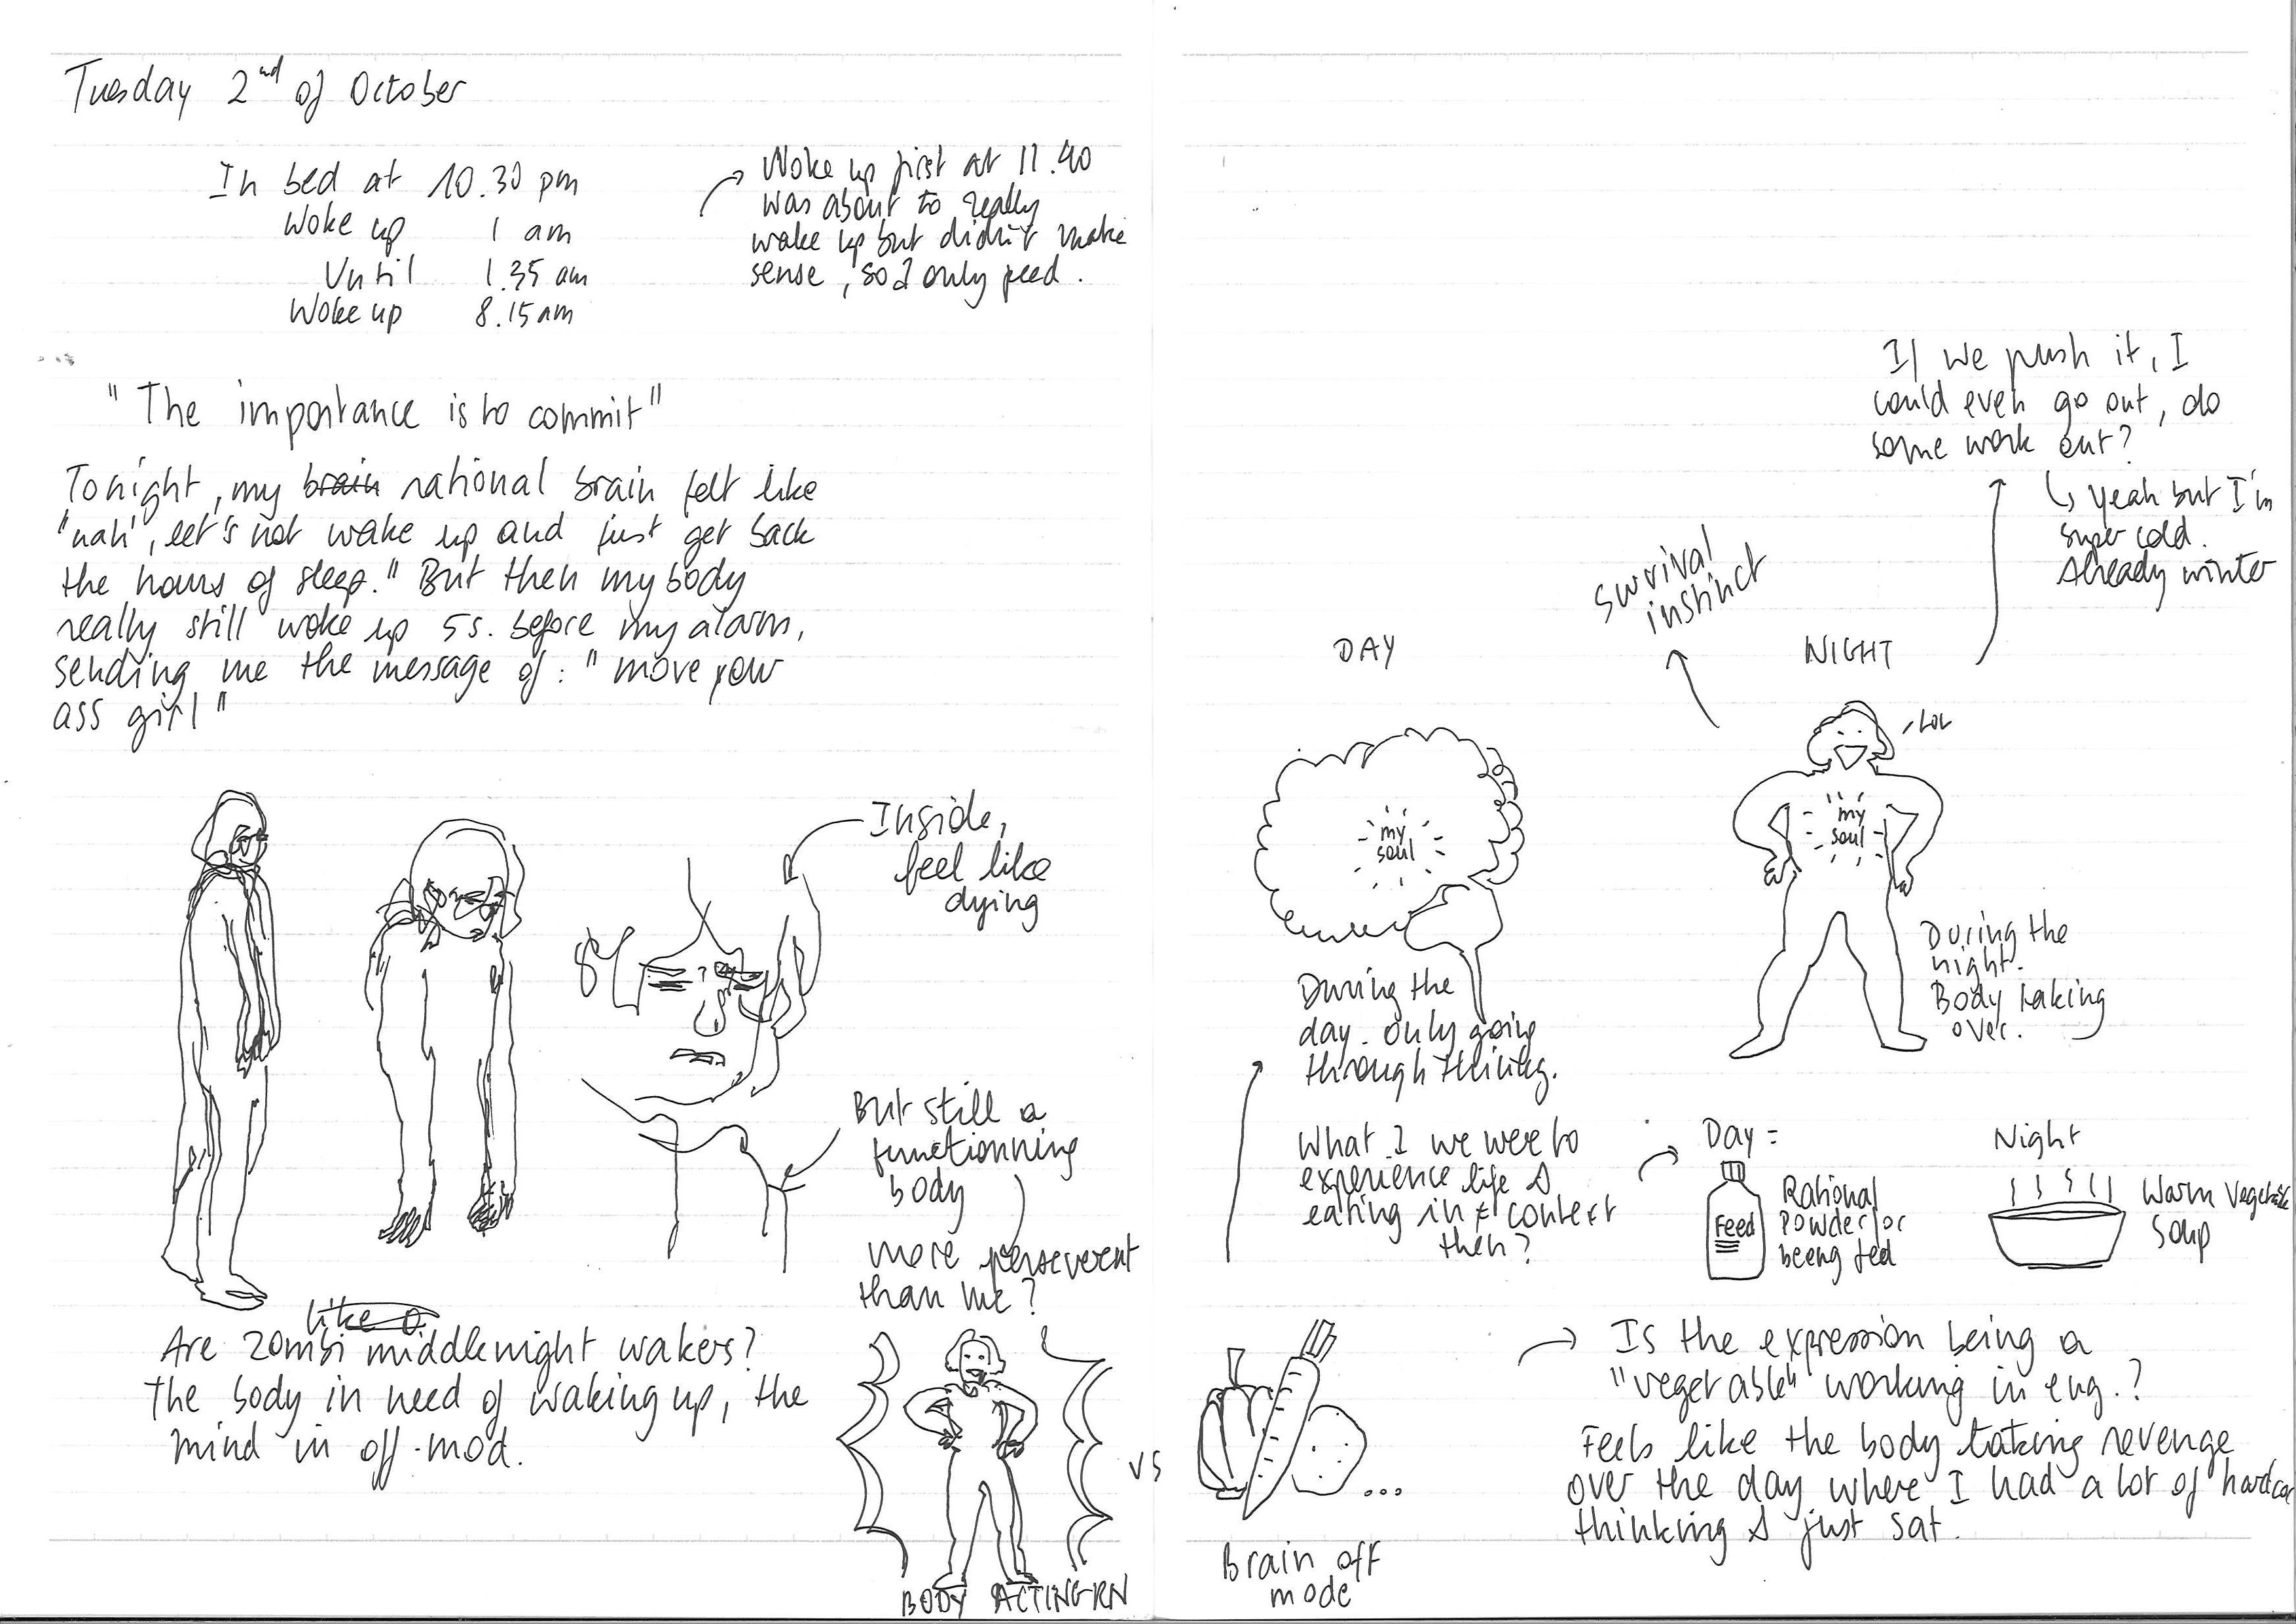 Tuesday 2nd of October
In bed at 10.30 pm
Woke up 1 am
Until 1.35 am
Woke up 8.15 am
Woke up first at 11.40
was about to really
wake up but didn't make
sense, so I only peed.
"The importance is to commit"
Tonight, my brain rational brain felt like
"nah", let's not wake up and just get back
the hours of sleep." But then my body
really still woke up 5s. before my alarm,
sending me the message of: "move your
ass girl"
Inside,
feel like
dying
But still a
functionning
body
more perseverent
than me?
like a
Are zombi middlenight wakers?
The body in need of waking up, the
mind in off-mod.
BODY ACTING RN
VS
If we push it, I
could even go out, do
some work out?
yeah but I'm
super cold.
Already winter
survival
instinct
DAY
NIGHT
LOL
my
soul
my
soul
During the
day. only going
through thinking.
During the
night.
Body taking
over.
What I we were to
experience life &
eating in ≠ context
then?
Day =
Feed
Rational
Powder for
being fed
Night
Warm vegetable
soup
...
Brain off
mode
Is the expression being a
"vegetable" working in eng.?
Feels like the body taking revenge
over the day where I had a lot of
thinking & just sat.